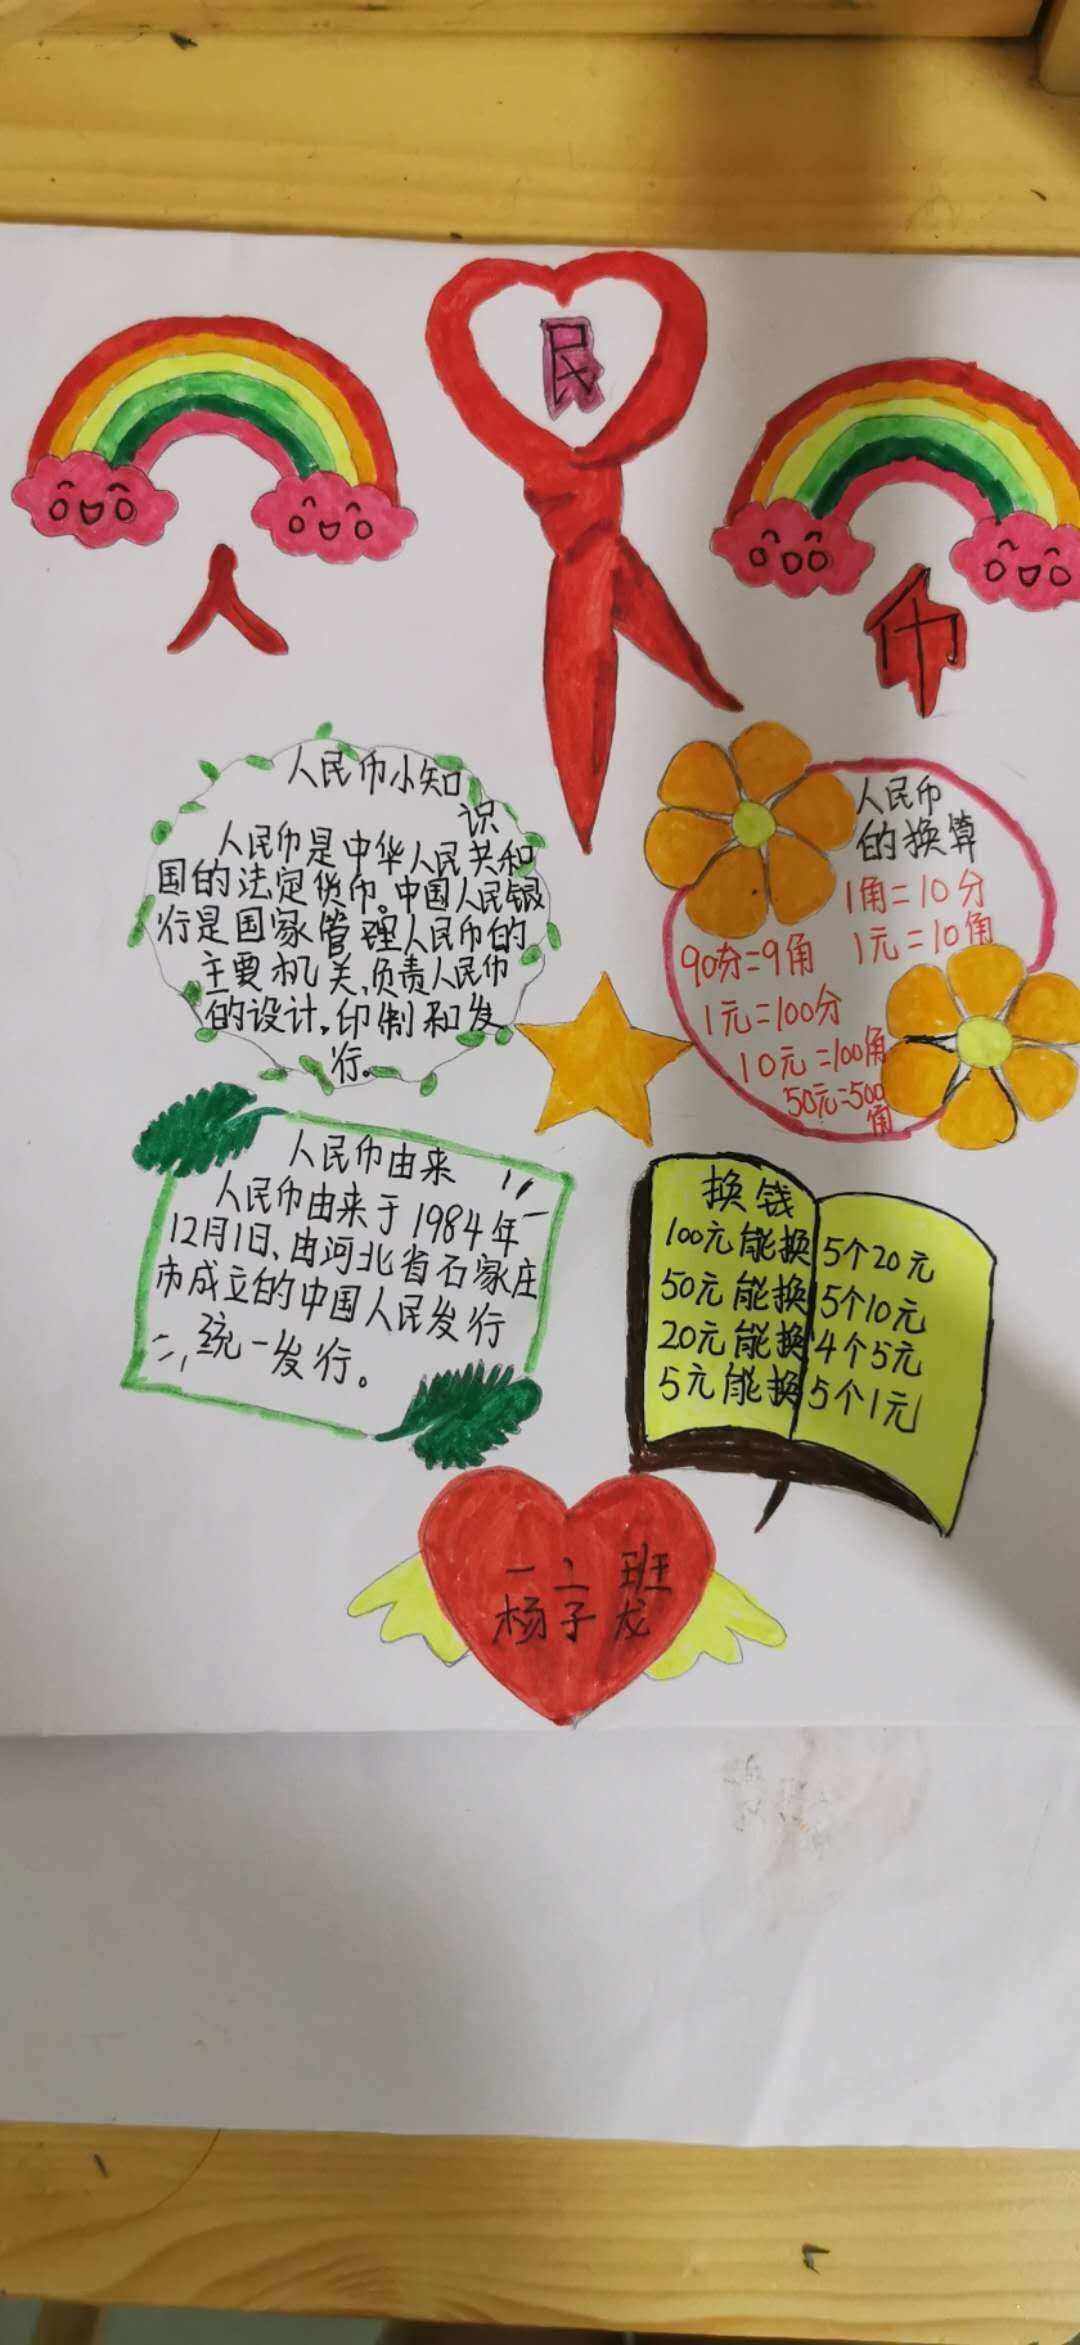 人民币
人民币小知
识
人民币是中华人民共和
国的法定货币。中国人民银
行是国家管理人民币的
主要机关,负责人民币
的设计,印制和发
行。
人民币
的换算
1角=10分
90分=9角 1元=10角
1元=100分
10元=100角
50元=500
角
人民币由来
人民币由来于1984年
12月1日、由河北省石家庄
市成立的中国人民发行
统一发行。
换钱
100元能换5个20元
50元能换5个10元
20元能换4个5元
5元能换5个1元
一上班
杨子龙